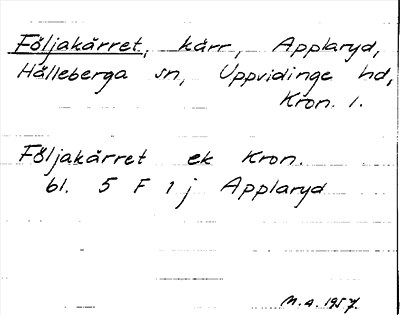 Följakärret, kärr, Applaryd,
Hälleberga sn, Uppvidinge hd,
Kron. l.
Följakärret ek Kron.
bl. 5 F 1 j Applaryd
M.a. 1957.